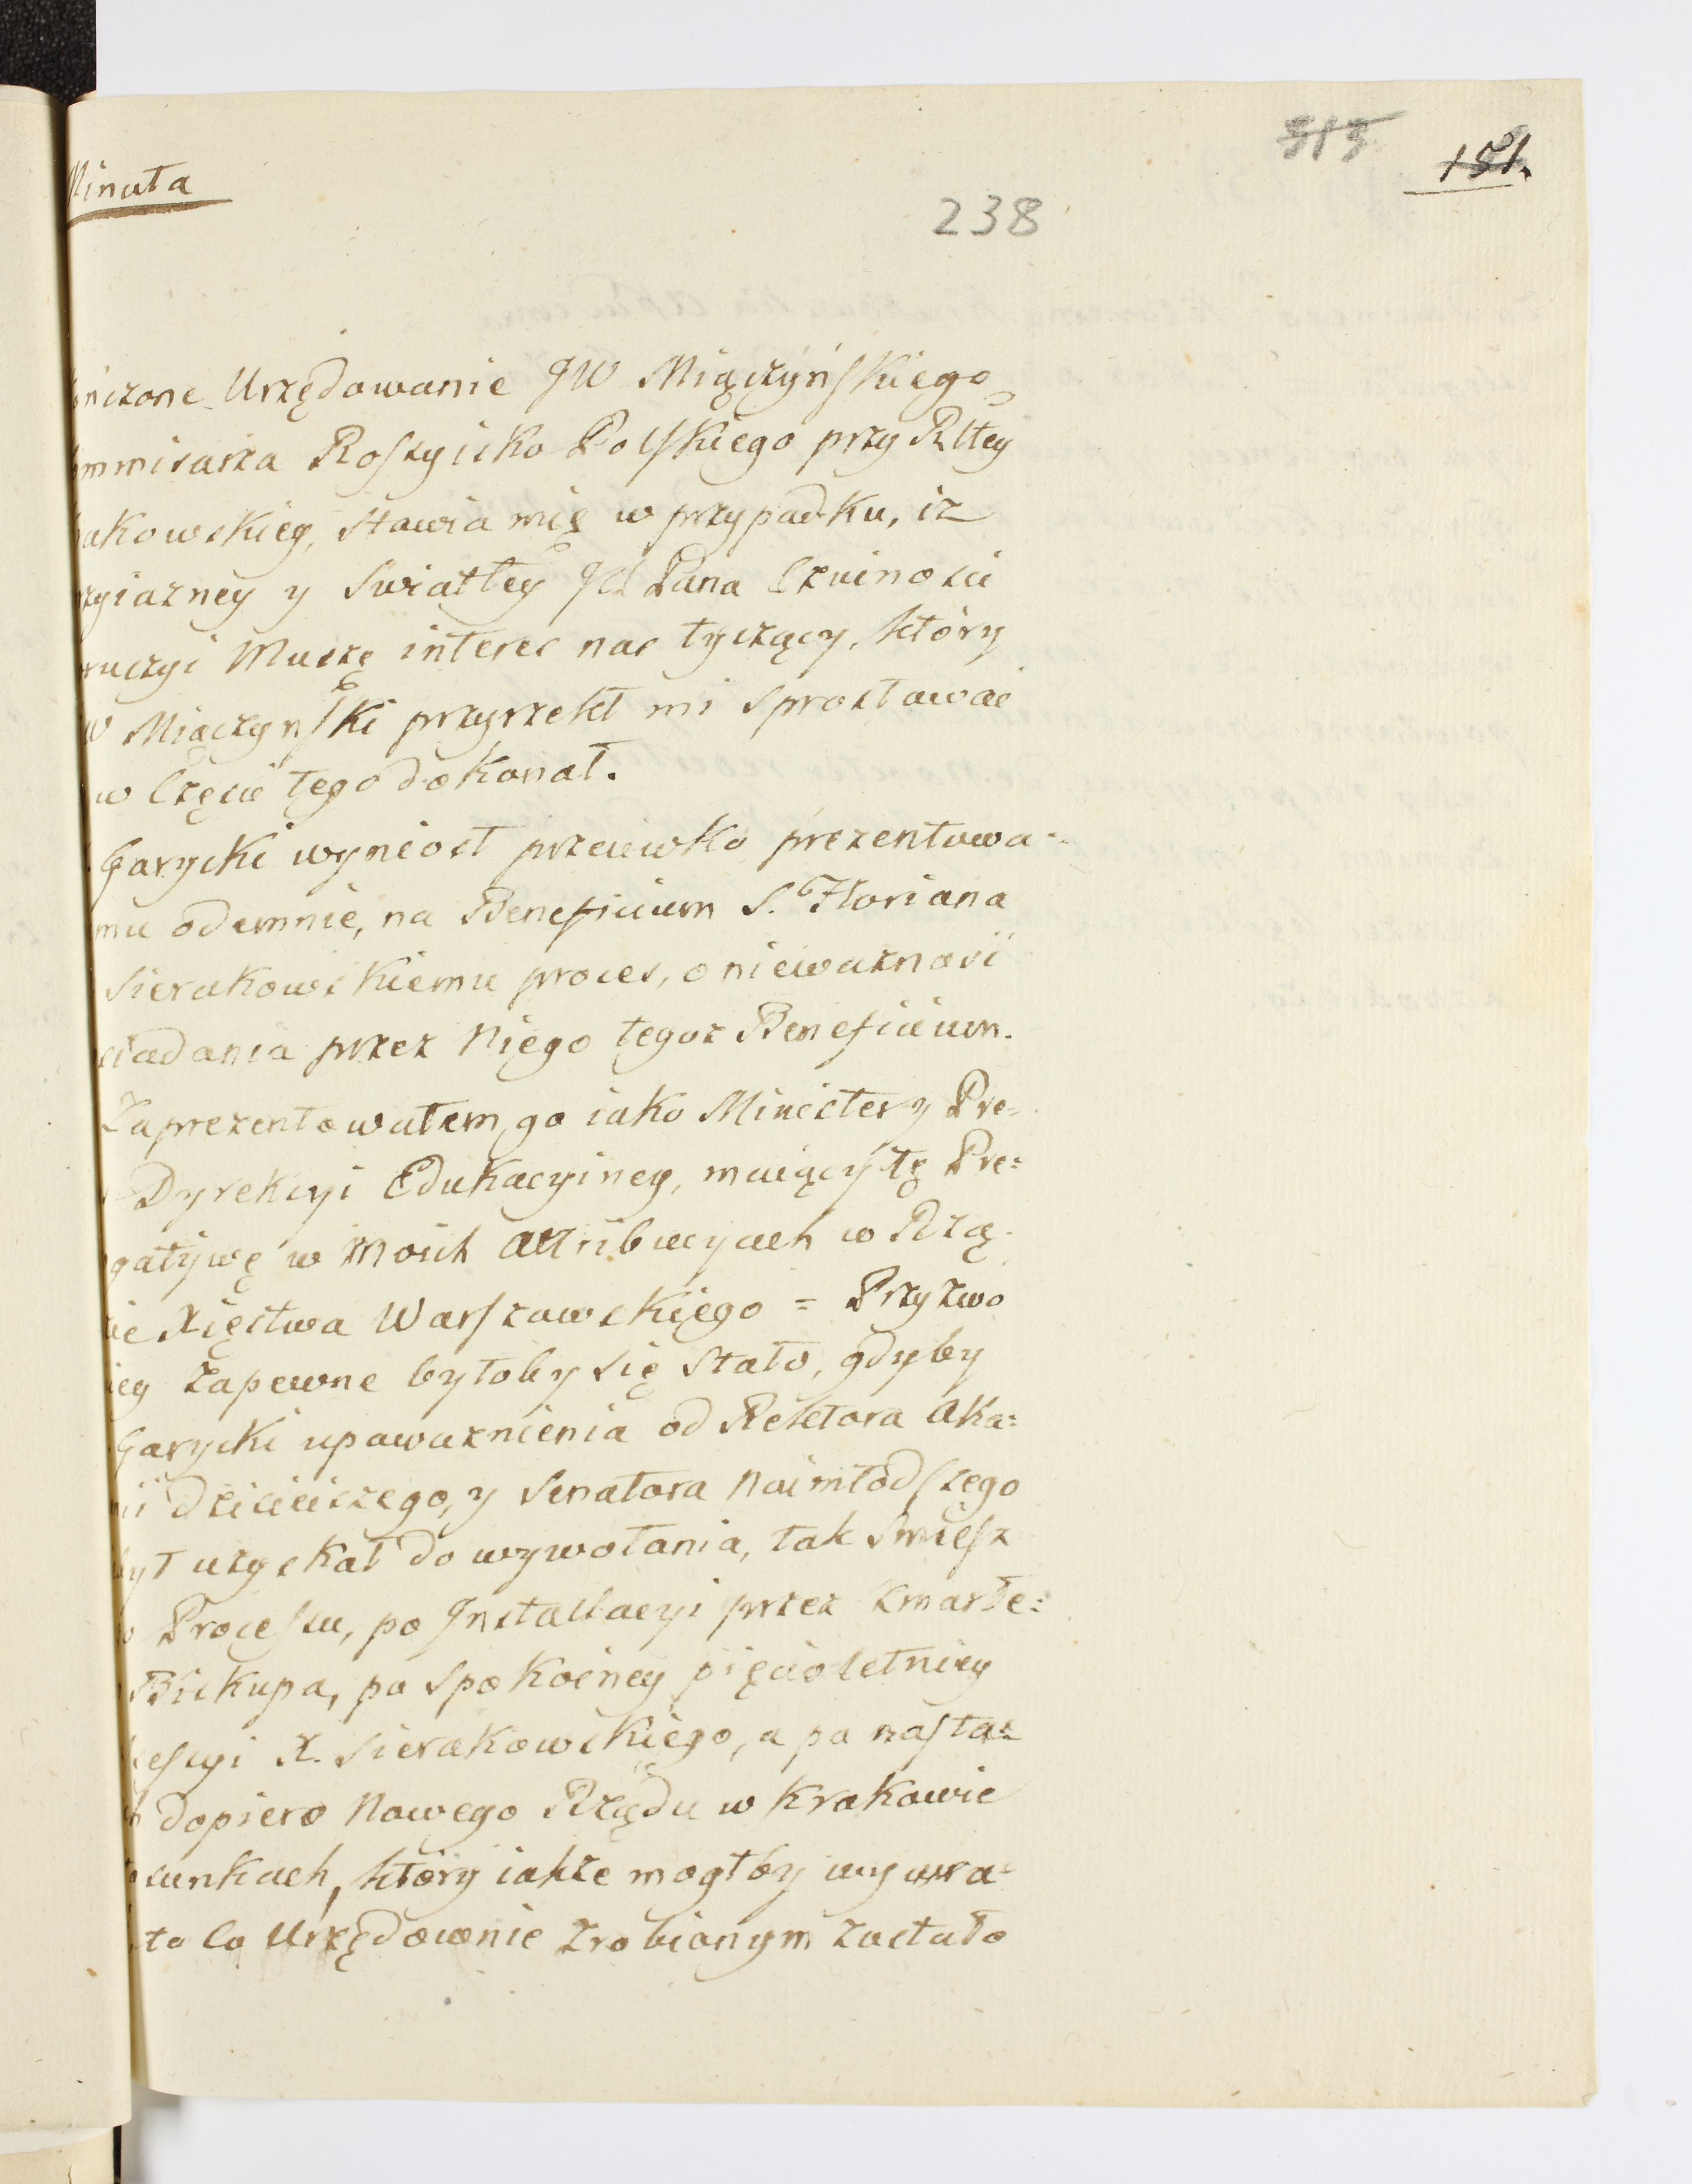 313
151.
Minuta
238
nczone Urzędowanie JW Miączyńskiego
mmisarza Rossyisko Polskiego przy Rltey
akowskiey, stawia mię w przypadku, iż
yiazney y Swiatłey JW Pana Czuinosci
ruczyi Muszę interes nas tyczący, który
W Miączynski przyrzekł mi sprostawać
w Częsci tego dokonał.
Garycki wyniosł przeciwko prezentowa-
mu odemnie, na Beneficium S. Floriana
Sierakowskiemu proces, o niewaznosci
siadania przez Niego tegoz Beneficium.
Zaprezentowałem go iako Minister y Pre=
Dyrekcyi Edukacyiney, maiący tę Pre=
gatywę w Moich Attribucyach w Rzą-
ie Xięstwa Warszawskiego = Przyzwo
iey zapewne byłoby się stało, gdyby
Garycki upowaznienia od Rektora Aka=
mii dzisieiszego, y Senatora Naimłodszego
był uzyskał do wywołania, tak Smiesz
o Processu, po Installacyi przez zmarłe=
Biskupa, po Spokoiney pięcioletniey
essyi X. Sierakowskiego, a po nasta=
h dopiero Nowego Rządu w Krakowie
sunkach, który iakże mogłby wywra=
to Co Urzędownie Zrobionym zostało